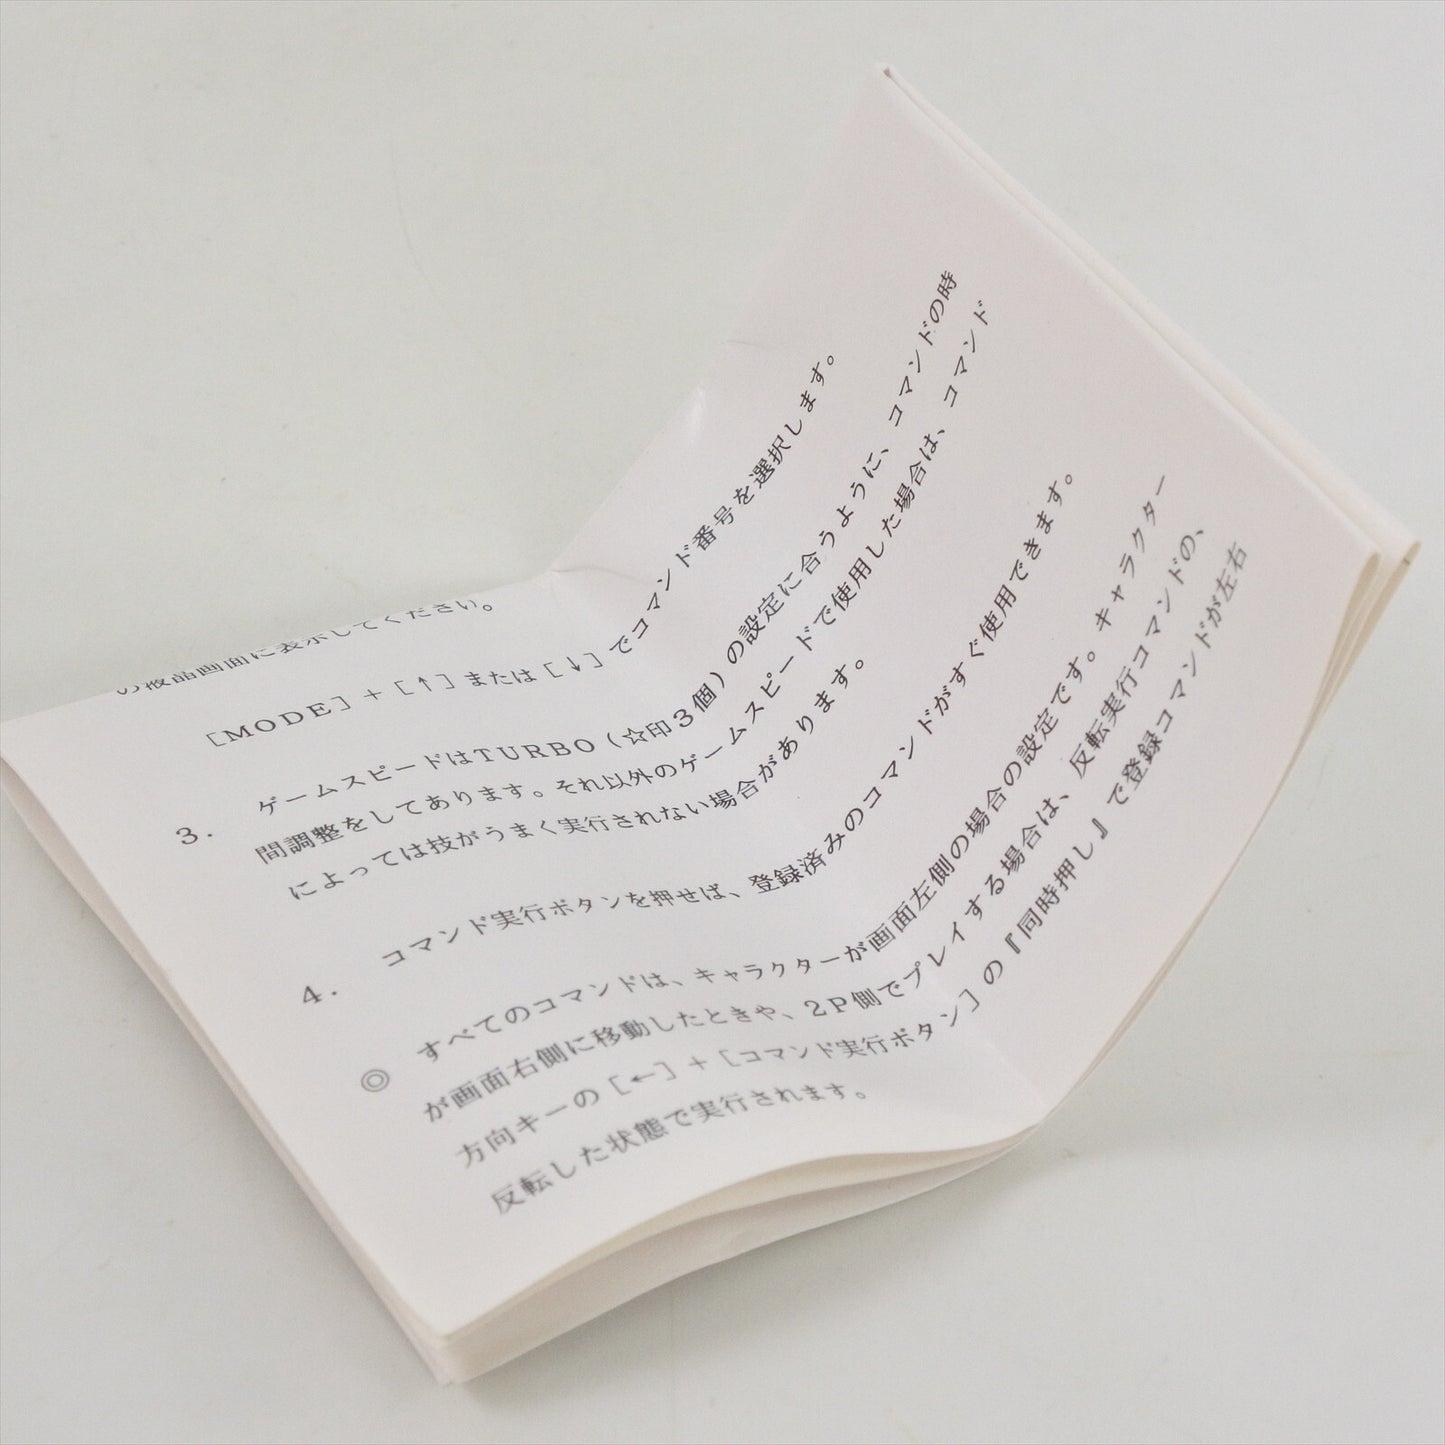 の液晶画面に表示してください。
[MODE]+[↑]または[↓]でコマンド番号を選択します。
3. ゲームスピードはTURBO(☆印3個)の設定に合うように、コマンドの時
間調整をしてあります。それ以外のゲームスピードで使用した場合は、コマンド
によっては技がうまく実行されない場合があります。
4. コマンド実行ボタンを押せば、登録済みのコマンドがすぐ使用できます。
◎ すべてのコマンドは、キャラクターが画面左側の場合の設定です。キャラクター
が画面右側に移動したときや、2P側でプレイする場合は、反転実行コマンドの、
方向キーの[←]+[コマンド実行ボタン]の『同時押し』で登録コマンドが左右
反転した状態で実行されます。